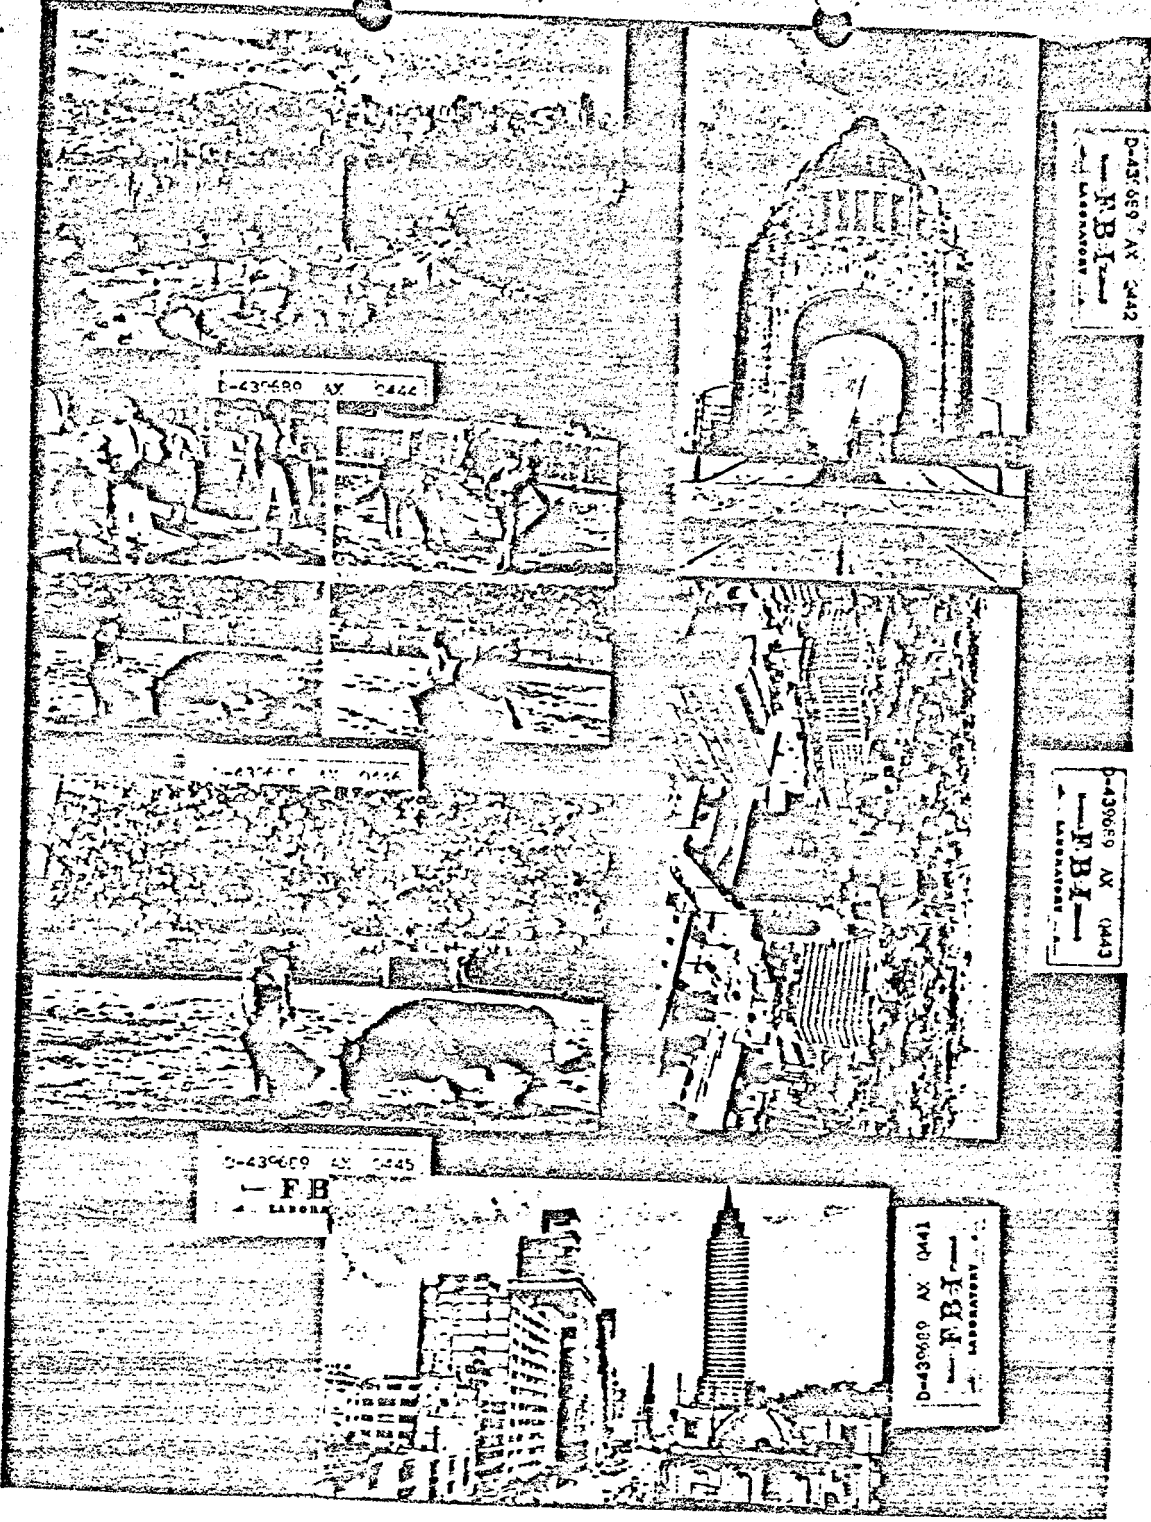 D-439689 AX Q442
FBI
LABORATORY
D-439689 AX Q444
D-439689 AX Q446
D-439689 AX Q443
FBI
LABORATORY
D-439689 AX Q445
FB
LABORA
D-439689 AX Q441
FBI
LABORATORY